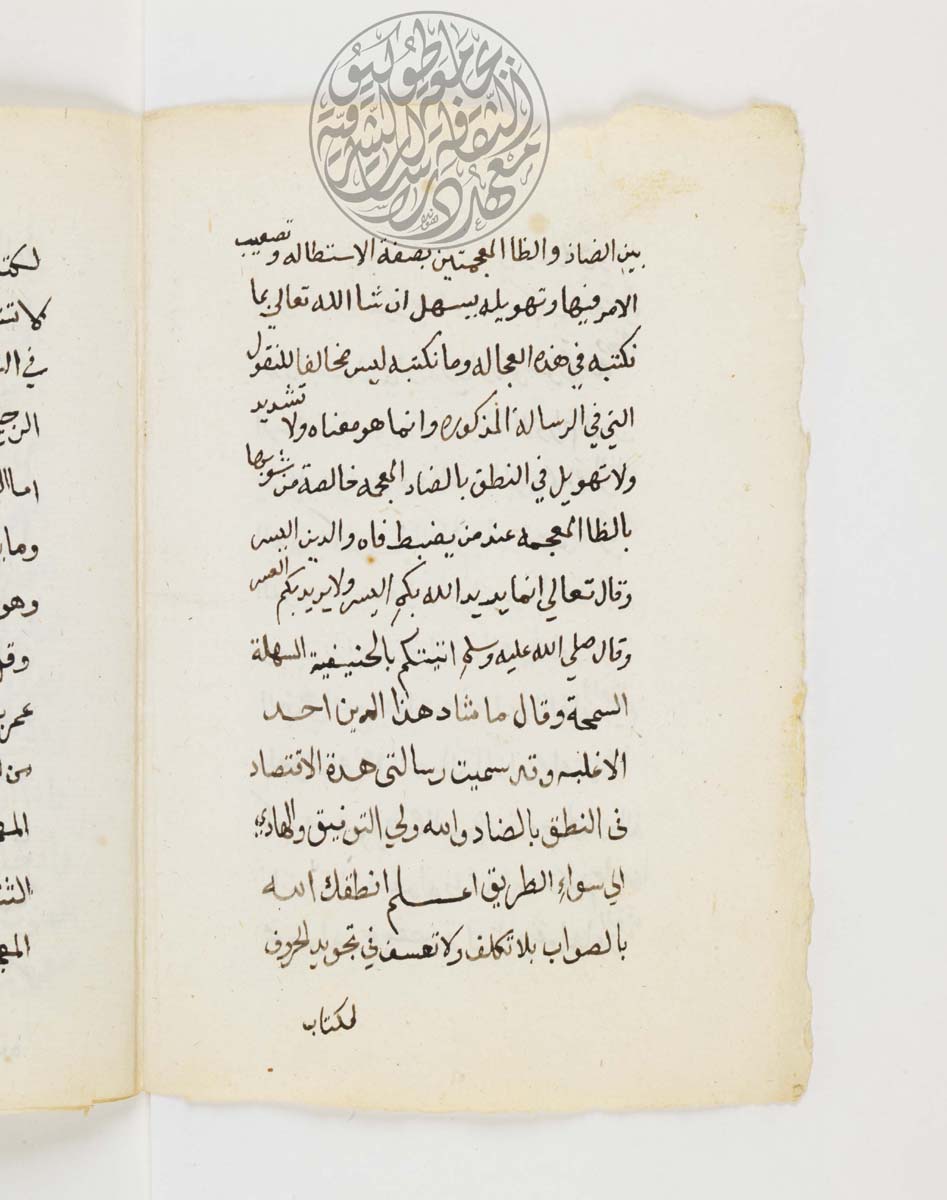 بين الضاد والظا المعجمتين بصفة الاستطاله وتصعيب
الامر فيها وتهويله يسهل ان شا الله تعالي بما
نكتبه في هذه العجاله وما نكتبه ليس مخالفا للنقول
التي في الرسالة المذكوره وانما هو معناه ولا تشديد
ولا تهويل في النطق بالضاد المعجمه خالصة من شوبها
بالظا المعجمه عند من يضبط فاه والدين اليسر
وقال تعالي انما يريد الله بكم اليسر ولا يريد بكم العسر
وقال صلي الله عليه وسلم اتيتكم بالحنيفية السهلة
السمحة وقال ما شاد هذا الدين احد
الا غلبه وقد سميت رسالتي هذة الاقتصاد
في النطق بالضاد والله ولي التوفيق والهادي
الي سواء الطريق اعلم انطقك الله
بالصواب بلا تكلف ولا تعسف في تجويد الحروف
لكتاب
وما
وهو